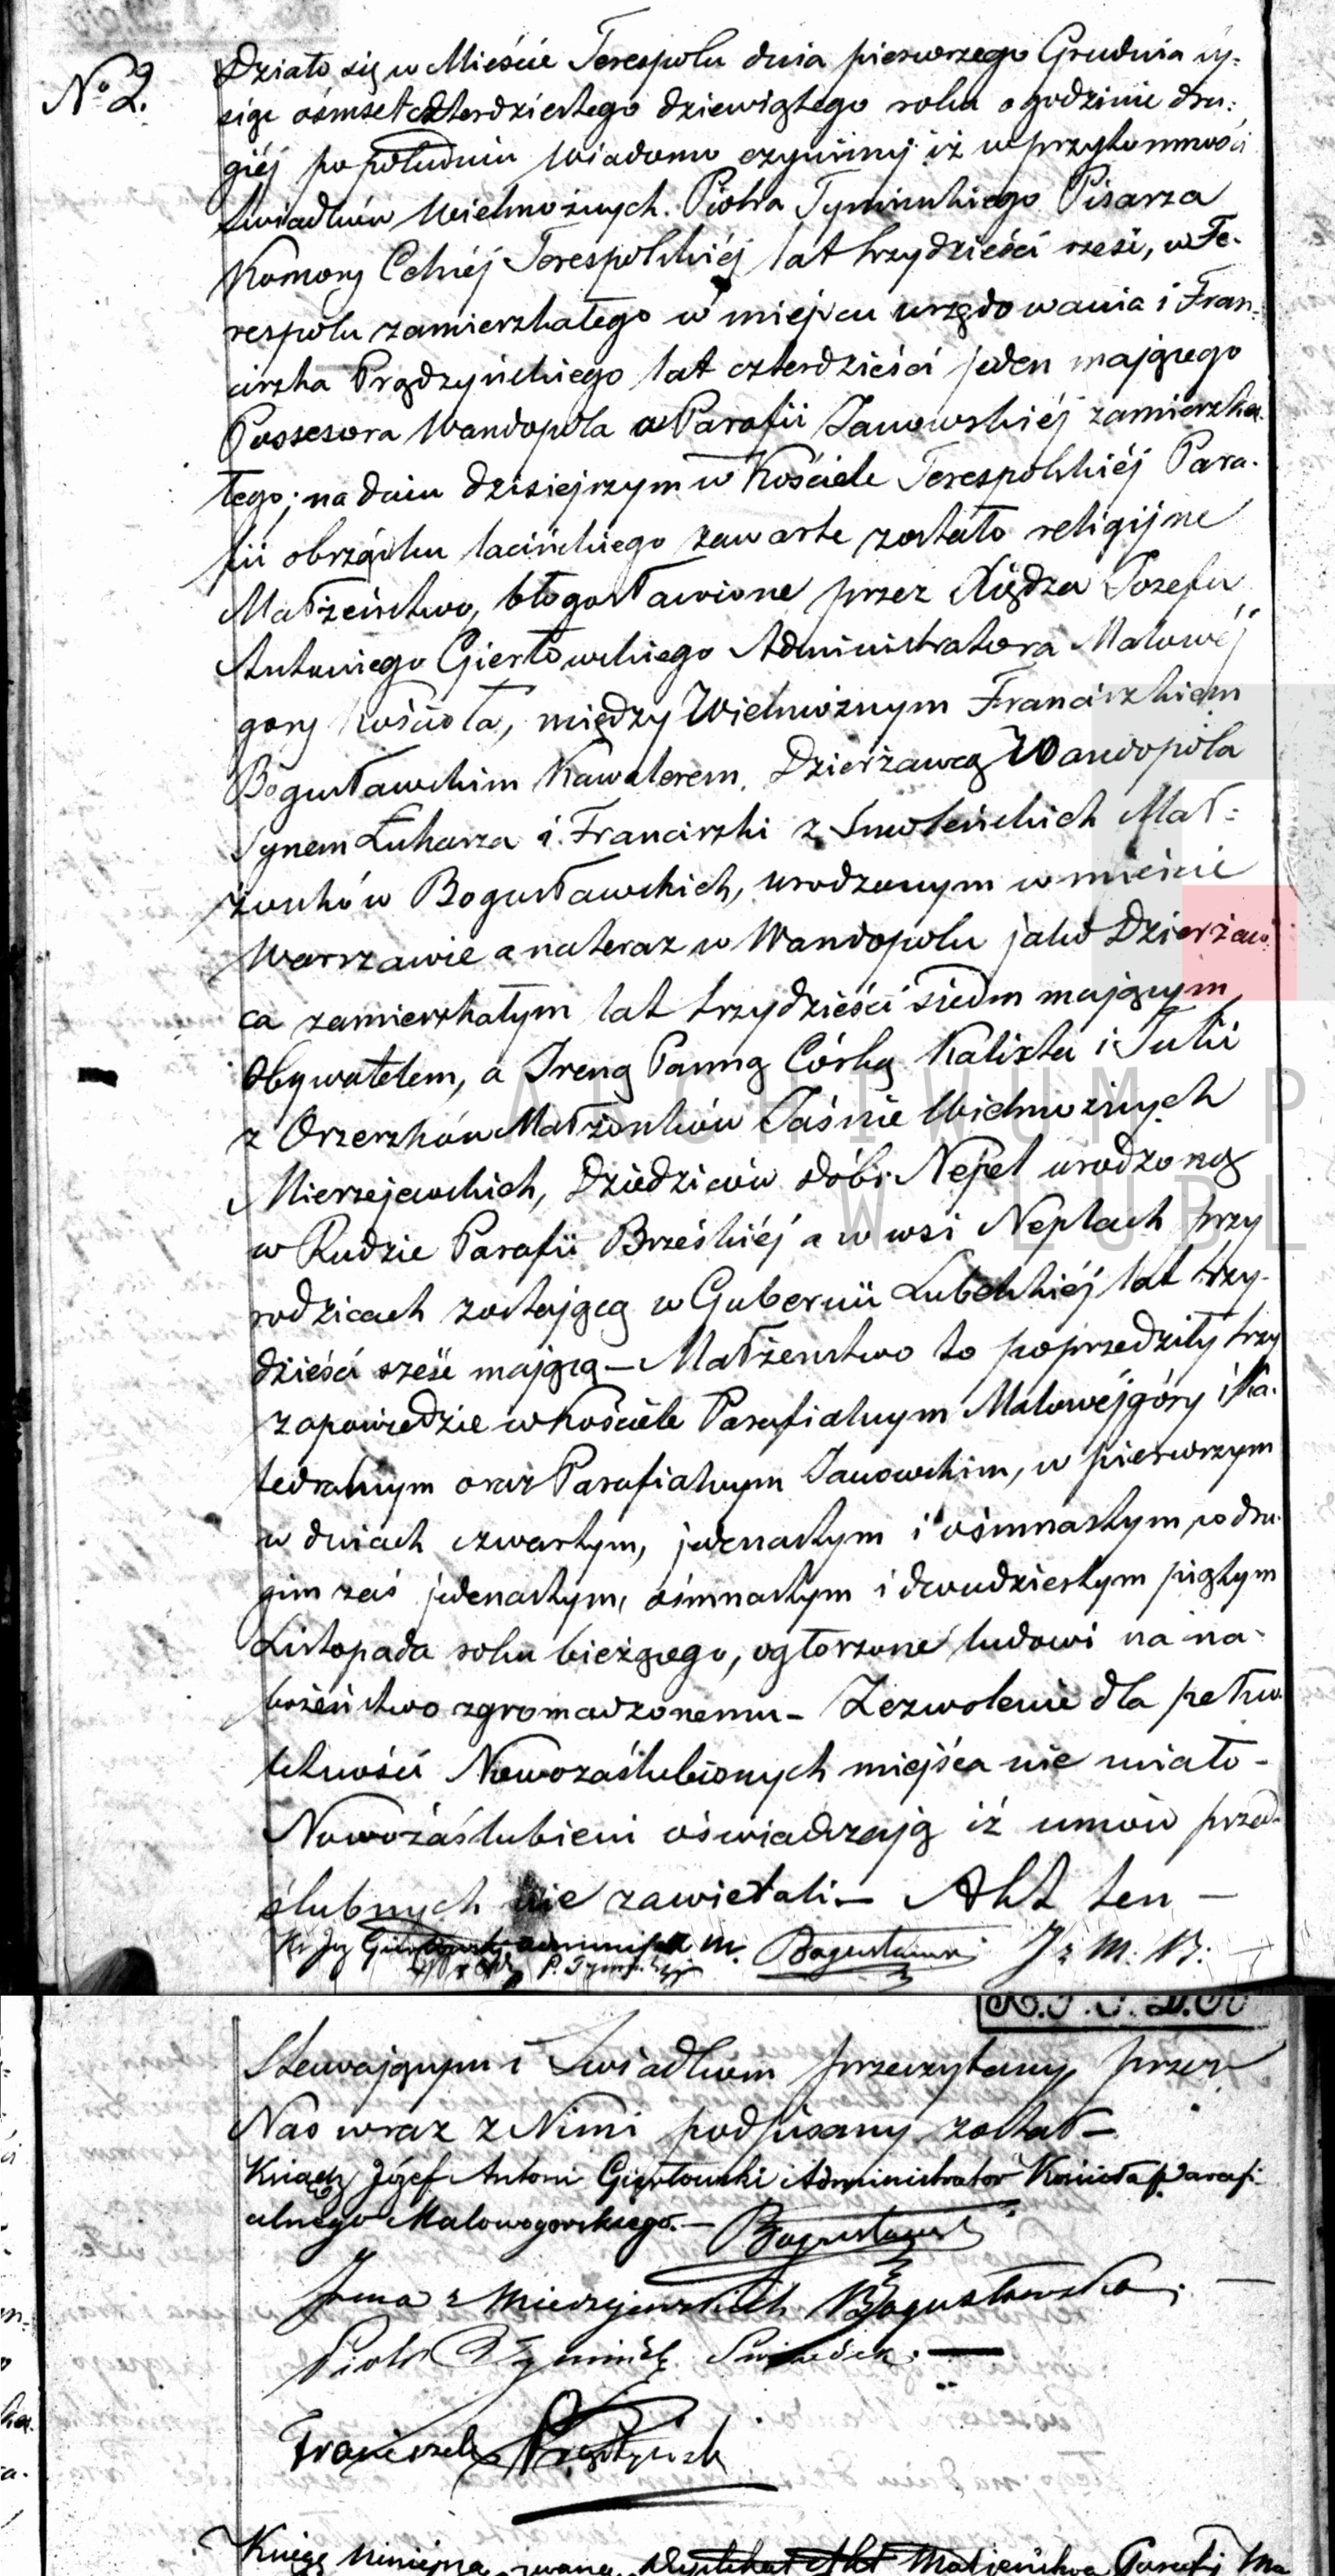 No 2.
Działo się w Mieście Terespolu dnia pierwszego Grudnia ty-
siąc ośmset czterdziestego dziewiątego roku o godzinie dru-
giéj po południu Wiadomo czynimy iż w przytomności
Świadków Wielmożnych Piotra Tymińskiego Pisarza
Komory Celnéj Terespolskiéj lat trzydzieści sześć, w Te-
respolu zamieszkałego w miejscu urzędowania i Fran-
ciszka Prądzyńskiego lat czterdzieści jeden mającego
Possesora Wandopola w Parafii Janowskiéj zamieszka-
łego; na dniu dzisiejszym w Kościele Terespolskiéj Para-
fii obrządku łacińskiego zawarte zostało religijne
Małżeństwo, błogosławione przez Xiędza Józefa
Antoniego Gierłowskiego Administratora Malowéj
gory Kościoła, między Wielmożnym Franciszkiem
Bogusławskim Kawalerem, Dzierżawcą Wandopola
Synem Łukasza i Franciszki z Smoleńskich Mał-
żonków Bogusławskich, urodzonym w mieście
Warszawie a na teraz w Wandopolu jako Dzierżaw-
ca zamieszkałym lat trzydzieści siedm mającym
Obywatelem, a Ireną Panną Córką Kalixta i Julii
z Orzeszków Małżonków Jaśnie Wielmożnych
Mierzejewskich, Dziedziców dóbr Nepel urodzoną
w Rudzie Parafii Brzeskiéj a w wsi Neplach przy
rodzicach zostającą w Gubernii Lubelskiéj lat trzy-
dzieści sześć mającą — Małżeństwo to poprzedziły trzy
zapowiedzie w Kościele Parafialnym Malowéjgóry i Ka-
tedralnym oraz Parafialnym Janowskim, w pierwszym
w dniach czwartym, jedenastym i ośmnastym, w dru-
gim zaś jedenastym, ośmnastym i dwudziestym piątym
Listopada roku bieżącego, ogłoszone ludowi na na-
bożeństwo zgromadzonemu — Zezwolenie dla pełno-
letności Nowozaślubionych miejsca nie miało —
Nowozaślubieni oświadczają iż umów przed-
ślubnych nie zawierali — Akt ten —
Bogusławski I z M. B.
ARCHIWUM P
W LUBL
Stawającym i Świadkom przeczytany przez
Nas wraz z Nimi podpisany został —
Ksiądz Józef Antoni Gierłowski Administrator Kościoła Parafi-
alnego Malowogorskiego. — Bogusławski
Irena z Mierzejewskich Bogusławska. —
Piotr Tymiński Świadek. —
Franciszek Prądzyński
Księgę niniejszą zwaną Duplikat Akt Małżeństwa Parafij Ma